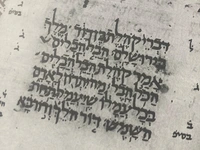 דברי קהלת בן דוד מלך
בירושלם הבל הבלים
אמר קהלת הבל הבלים
הכל הבל מה יתרון לאדם
בכל עמלו שיעמל תחת
השמש דור הלך ודור בא